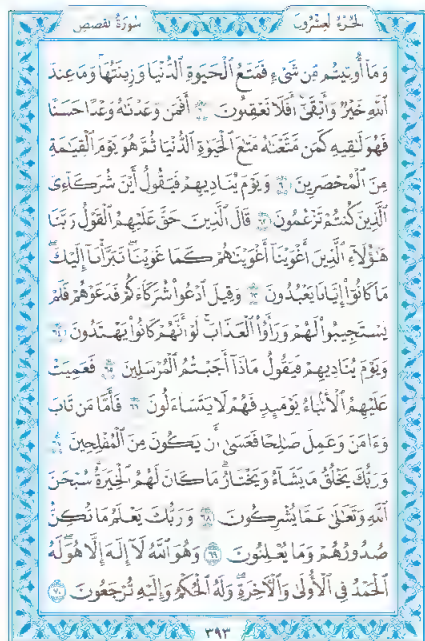 الجزء العشرون
سورة القصص
وَمَآ أُوتِيتُم مِّن شَىْءٍ فَمَتَٰعُ ٱلْحَيَوٰةِ ٱلدُّنْيَا وَزِينَتُهَا وَمَا عِندَ
ٱللَّهِ خَيْرٌ وَأَبْقَىٰٓ أَفَلَا تَعْقِلُونَ ٦٠ أَفَمَن وَعَدْنَٰهُ وَعْدًا حَسَنًا
فَهُوَ لَٰقِيهِ كَمَن مَّتَّعْنَٰهُ مَتَٰعَ ٱلْحَيَوٰةِ ٱلدُّنْيَا ثُمَّ هُوَ يَوْمَ ٱلْقِيَٰمَةِ
مِنَ ٱلْمُحْضَرِينَ ٦١ وَيَوْمَ يُنَادِيهِمْ فَيَقُولُ أَيْنَ شُرَكَآءِىَ
ٱلَّذِينَ كُنتُمْ تَزْعُمُونَ ٦٢ قَالَ ٱلَّذِينَ حَقَّ عَلَيْهِمُ ٱلْقَوْلُ رَبَّنَا
هَٰٓؤُلَآءِ ٱلَّذِينَ أَغْوَيْنَآ أَغْوَيْنَٰهُمْ كَمَا غَوَيْنَا تَبَرَّأْنَآ إِلَيْكَ
مَا كَانُوٓا۟ إِيَّانَا يَعْبُدُونَ ٦٣ وَقِيلَ ٱدْعُوا۟ شُرَكَآءَكُمْ فَدَعَوْهُمْ فَلَمْ
يَسْتَجِيبُوا۟ لَهُمْ وَرَأَوُا۟ ٱلْعَذَابَ لَوْ أَنَّهُمْ كَانُوا۟ يَهْتَدُونَ ٦٤
وَيَوْمَ يُنَادِيهِمْ فَيَقُولُ مَاذَآ أَجَبْتُمُ ٱلْمُرْسَلِينَ ٦٥ فَعَمِيَتْ
عَلَيْهِمُ ٱلْأَنۢبَآءُ يَوْمَئِذٍ فَهُمْ لَا يَتَسَآءَلُونَ ٦٦ فَأَمَّا مَن تَابَ
وَءَامَنَ وَعَمِلَ صَٰلِحًا فَعَسَىٰٓ أَن يَكُونَ مِنَ ٱلْمُفْلِحِينَ ٦٧
وَرَبُّكَ يَخْلُقُ مَا يَشَآءُ وَيَخْتَارُ مَا كَانَ لَهُمُ ٱلْخِيَرَةُ سُبْحَٰنَ
ٱللَّهِ وَتَعَٰلَىٰ عَمَّا يُشْرِكُونَ ٦٨ وَرَبُّكَ يَعْلَمُ مَا تُكِنُّ
صُدُورُهُمْ وَمَا يُعْلِنُونَ ٦٩ وَهُوَ ٱللَّهُ لَآ إِلَٰهَ إِلَّا هُوَ لَهُ
ٱلْحَمْدُ فِى ٱلْأُولَىٰ وَٱلْءَاخِرَةِ وَلَهُ ٱلْحُكْمُ وَإِلَيْهِ تُرْجَعُونَ ٧٠
٣٩٣